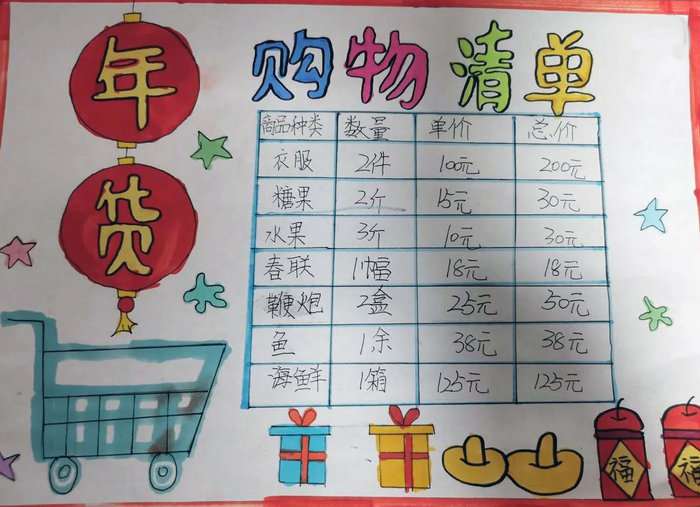 年货
购物清单
商品种类 数量 单价 总价
衣服 2件 100元 200元
糖果 2斤 15元 30元
水果 3斤 10元 30元
春联 1幅 18元 18元
鞭炮 2盒 25元 50元
鱼 1余 38元 38元
海鲜 1箱 125元 125元
福 福